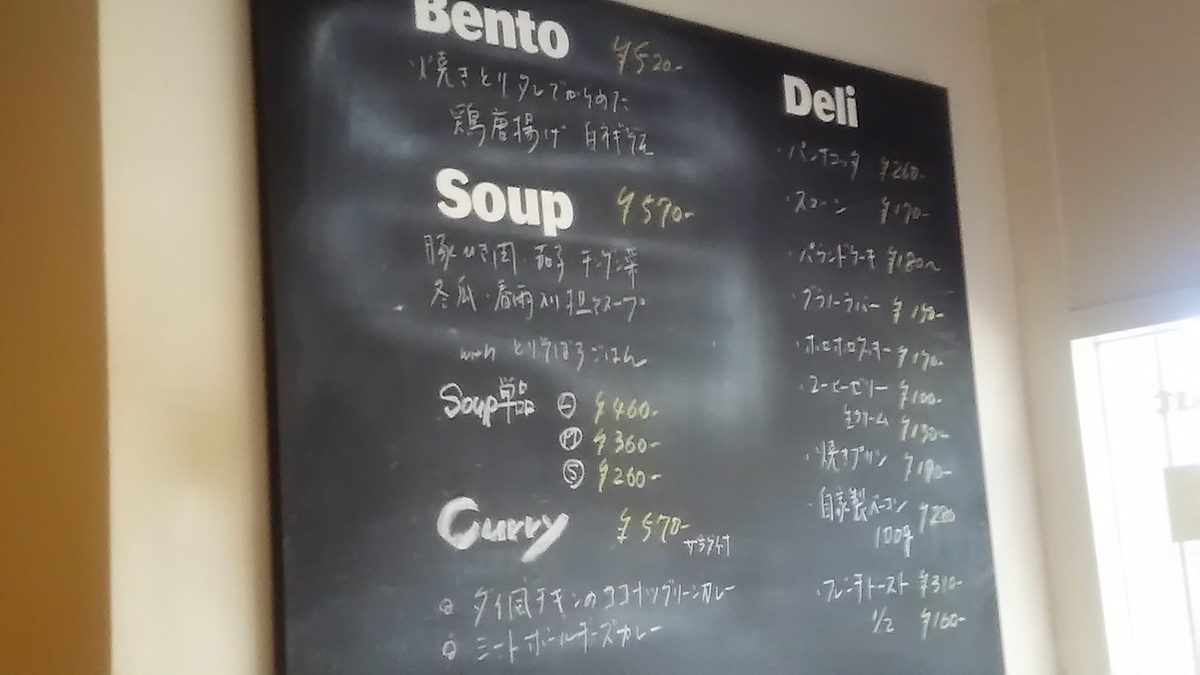 Bento ¥520-
・焼きとりタレでからめた
鶏唐揚げ 白ネギ
Soup ¥570-
豚ひき肉・茄子 チンゲン菜
冬瓜・春雨入り担々スープ
with とりそぼろごはん
Soup単品 Ⓛ ¥460-
Ⓜ ¥360-
Ⓢ ¥260-
Curry ¥570-
サラダ付
タイ風チキンのココナッツグリーンカレー
ミートボールチーズカレー
Deli
・パンナコッタ ¥260-
・スコーン ¥170-
・パウンドケーキ ¥180~
・グラノーラバー ¥150-
・ホロホロクッキー ¥170-
・コーヒーゼリー ¥100-
生クリーム ¥130-
・焼きプリン ¥190-
・自家製ベーコン ¥280
100g
・フレンチトースト ¥310-
1/2 ¥160-